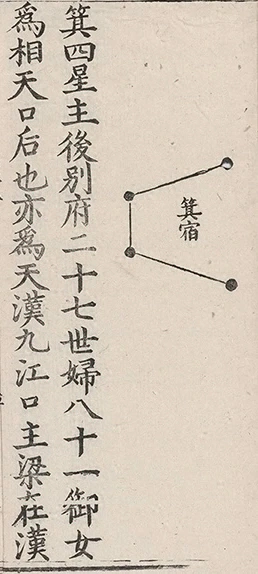 箕宿
箕四星主後別府二十七世婦八十一御女
為相天口后也亦為天漢九江口主梁在漢